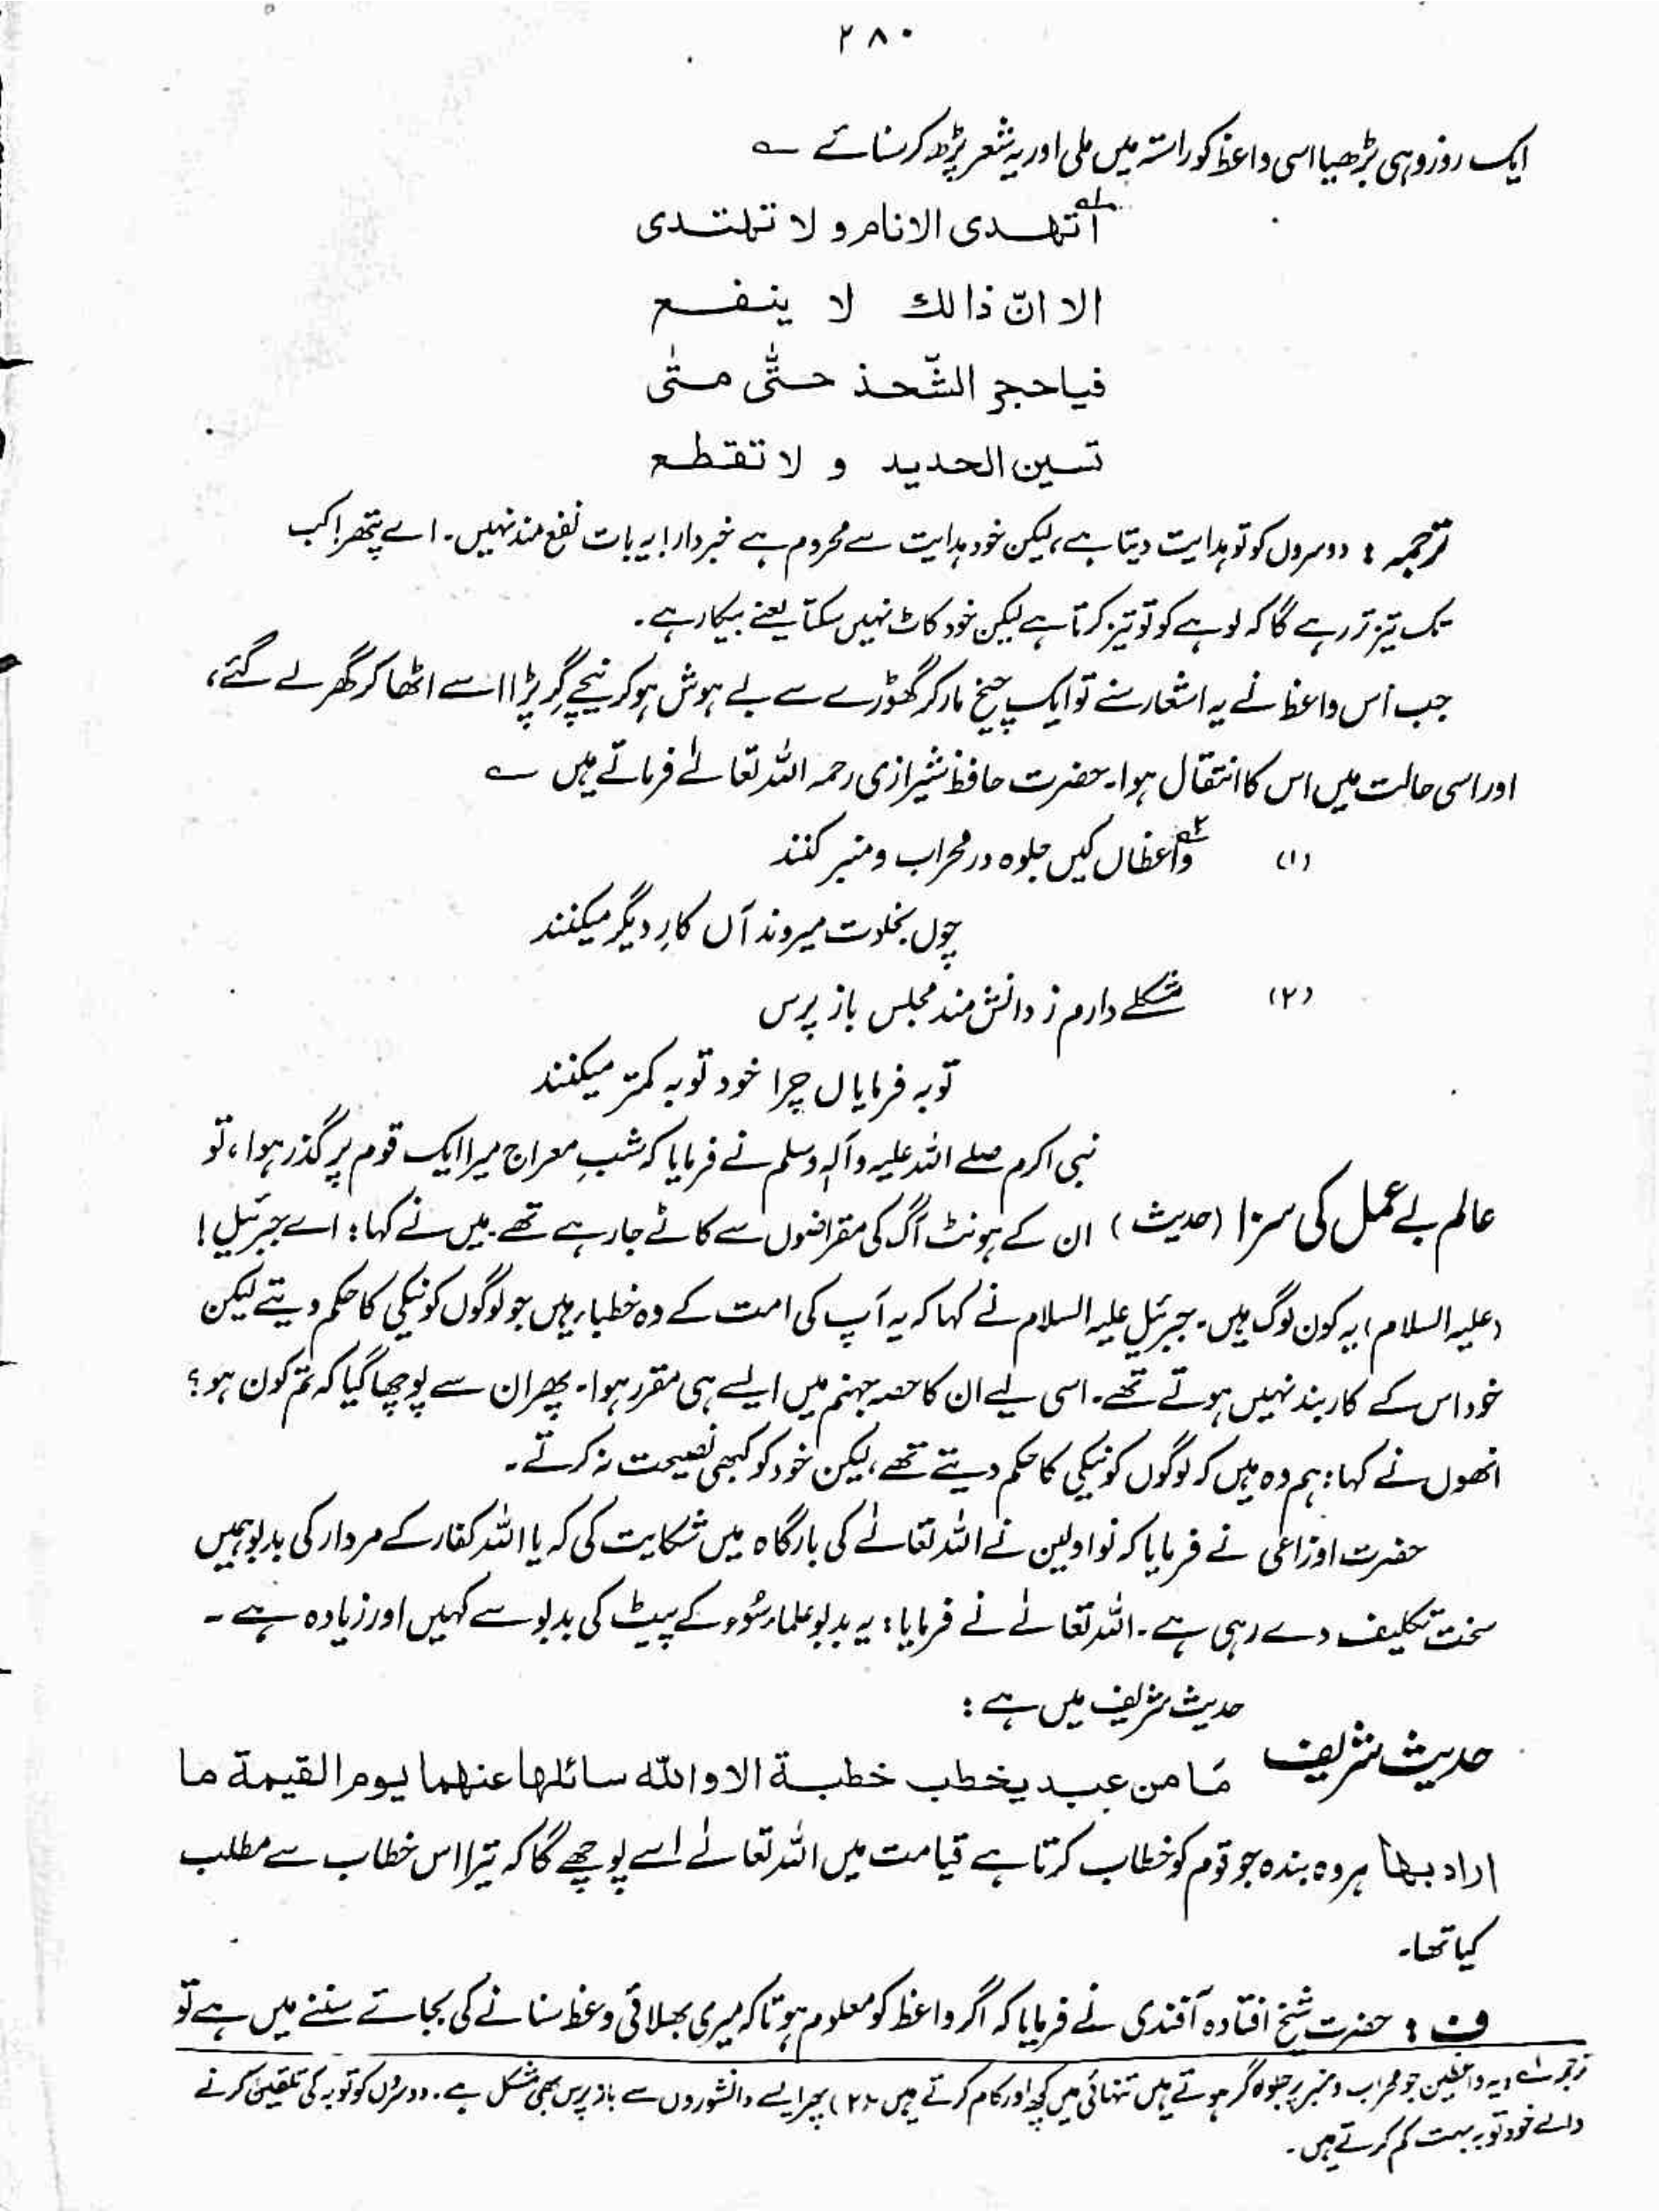 ۲۸۰
ایک روز وہی بڑھیا اسی واعظ کو راستہ میں ملی اور یہ شعر پڑھ کر سنائے ؎
اتهدی الانام و لا تهتدی
الا انّ ذالك لا ينفع
فیاحجر الشّحذ حتّٰی متٰی
تسین الحدید و لا تقطع
ترجمہ : دوسروں کو تو ہدایت دیتا ہے، لیکن خود ہدایت سے محروم ہے خبردار! یہ بات نفع مند نہیں۔ اے پتھر! کب
تک تیز تر رہے گا کہ لوہے کو تو تیز کرتا ہے لیکن خود کاٹ نہیں سکتا یعنے بیکار ہے۔
جب اُس واعظ نے یہ اشعار سنے تو ایک چیخ مار کر گھوڑے سے بے ہوش ہو کر نیچے گر پڑا اسے اٹھا کر گھر لے گئے،
اور اسی حالت میں اس کا انتقال ہوا۔ حضرت حافظ شیرازی رحمہ اللہ تعالےٰ فرماتے ہیں ؎
(۱) واعظاں کیں جلوہ در محراب و منبر کنند
چوں بخلوت میروند آں کارِ دیگر میکنند
(۲) مشکلے دارم ز دانش مند مجلس باز پرس
توبہ فرمایاں چرا خود توبہ کمتر میکنند
نبی اکرم صلے اللہ علیہ وآلہٖ وسلم نے فرمایا کہ شبِ معراج میرا ایک قوم پر گذر ہوا، تو
عالم بے عمل کی سزا (حدیث) ان کے ہونٹ آگ کی مقراضوں سے کاٹے جا رہے تھے۔ میں نے کہا: اے جبرئیل!
(علیہ السلام) یہ کون لوگ ہیں۔ جبرئیل علیہ السلام نے کہا کہ یہ آپ کی امت کے وہ خطباء ہیں جو لوگوں کو نیکی کا حکم دیتے لیکن
خود اس کے کار بند نہیں ہوتے تھے۔ اسی لیے ان کا حصہ جہنم میں ایسے ہی مقرر ہوا۔ پھر ان سے پوچھا گیا کہ تم کون ہو؟
انھوں نے کہا: ہم وہ ہیں کہ لوگوں کو نیکی کا حکم دیتے تھے، لیکن خود کو کبھی نصیحت نہ کرتے۔
حضرت اوزاعی نے فرمایا کہ نواولین نے اللہ تعالےٰ کی بارگاہ میں شکایت کی کہ یا اللہ کفار کے مردار کی بدبو ہمیں
سخت تکلیف دے رہی ہے۔ اللہ تعالےٰ نے فرمایا: یہ بدبو علماء سُوء کے پیٹ کی بدبو سے کہیں اور زیادہ ہے۔
حدیث شریف میں ہے :
حدیث شریف مَا من عبد یخطب خطبة الا و اللّٰه سائلها عنهما یوم القیمة ما
اراد بھا ہر وہ بندہ جو قوم کو خطاب کرتا ہے قیامت میں اللہ تعالےٰ اسے پوچھے گا کہ تیرا اس خطاب سے مطلب
کیا تھا۔
ف : حضرت شیخ افتادہ آفندی نے فرمایا کہ اگر واعظ کو معلوم ہوتا کہ میری بھلائی وعظ سنانے کی بجائے سننے میں ہے تو
ترجمہ یہ واعظین جو محراب و منبر پر جلوہ گر ہوتے ہیں تنہائی میں کچھ اور کام کرتے ہیں (۲) پھر ایسے دانشوروں سے باز پرس بھی مشکل ہے۔ دوسروں کو توبہ کی تلقین کرنے
والے خود توبہ بہت کم کرتے ہیں۔